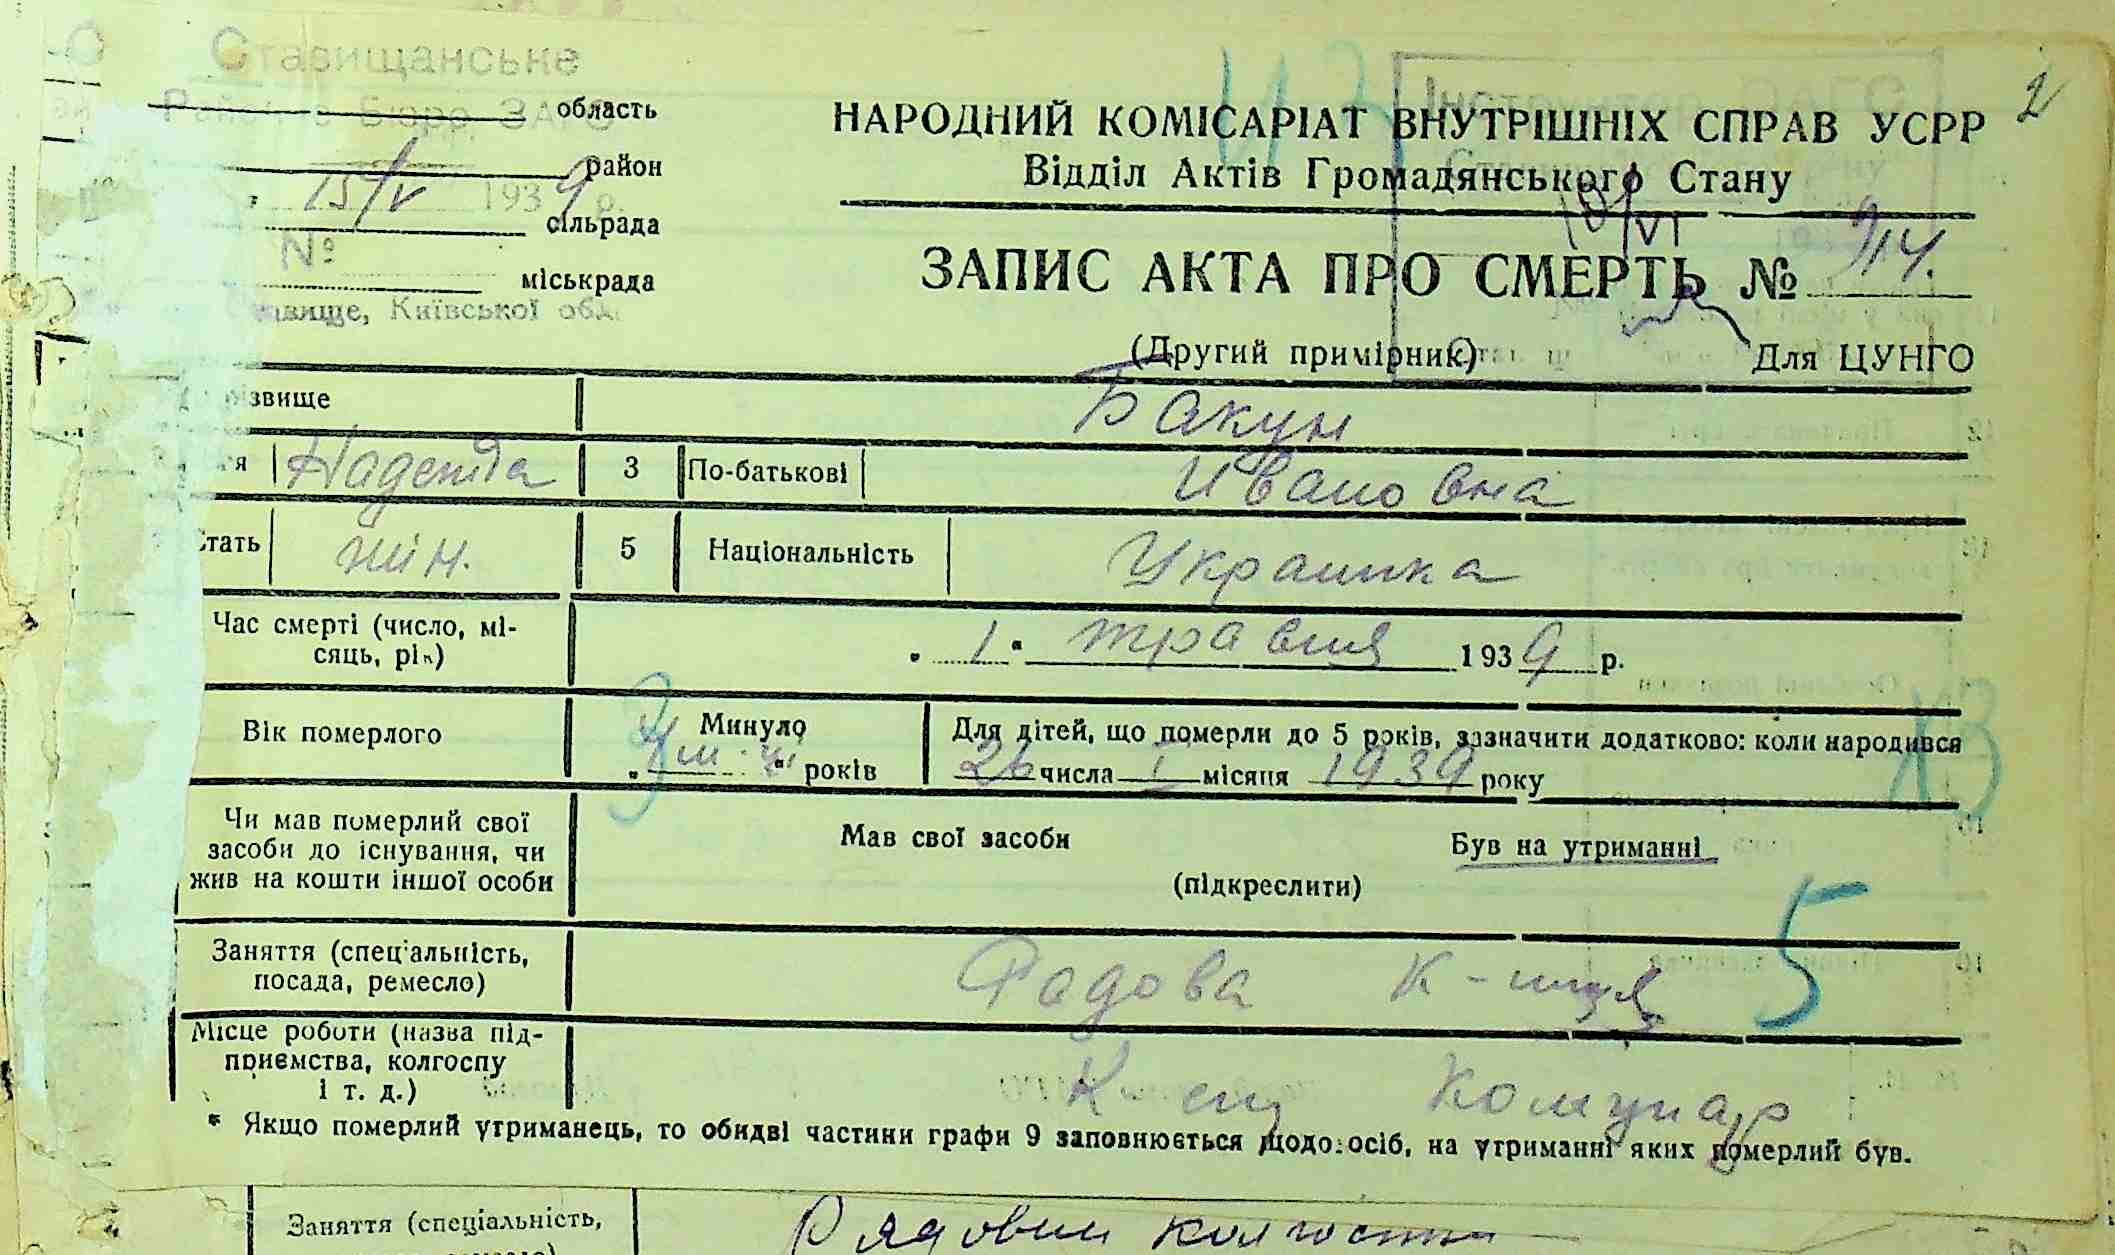 Ставищанське
Районне Бюро ЗАГС
область
район
15/V 1939 р.
сільрада
№
міськрада
Ставище, Київської обл.
2
НАРОДНИЙ КОМІСАРІАТ ВНУТРІШНІХ СПРАВ УСРР
Відділ Актів Громадянського Стану
ЗАПИС АКТА ПРО СМЕРТЬ №
(Другий примірник) Для ЦУНГО
Прізвище Бакун
Надежда 3 По-батькові Ивановна
Стать жін. 5 Національність Украинка
Час смерті (число, мі-
сяць, рік) „ 1 " травня 1939 р.
Вік померлого Минуло
років
Для дітей, що померли до 5 років, зазначити додатково: коли народився
26 числа І місяця 1939 року
Чи мав померлий свої
засоби до існування, чи
жив на кошти іншої особи
Мав свої засоби Був на утриманні
(підкреслити)
5
Заняття (спеціальність,
посада, ремесло) Радова к-ниця
Місце роботи (назва під-
приємства, колгоспу
і т. д.) Комунар
* Якщо померлий утриманець, то обидві частини графи 9 заповнюється щодо осіб, на утриманні яких померлий був.
Заняття (спеціальність, Рядовий